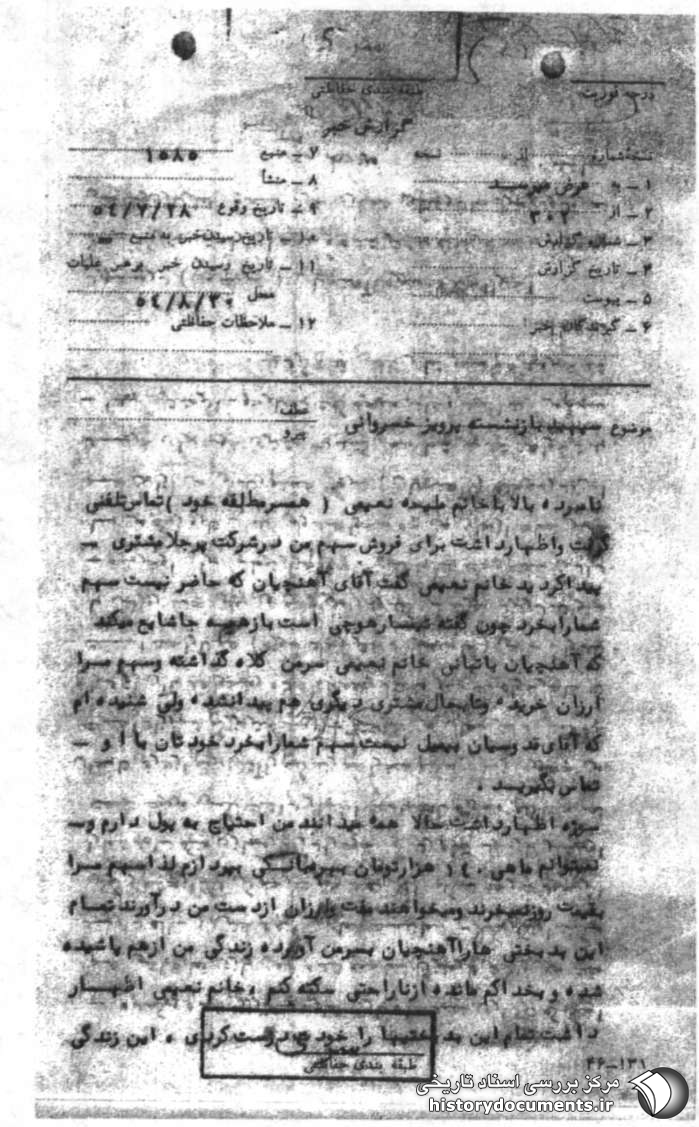 درجه فوریت
طبقه‌بندی حفاظتی
گزارش خبر
نسخه شماره از نسخه
۱ ـ به عرض میرسد
۲ ـ از ۳۰۲
۳ ـ شماره گزارش
۴ ـ تاریخ گزارش
۵ ـ پیوست
۶ ـ گیرندگان خبر
۷ ـ منبع ۱۵۸۵
۸ ـ منشأ
۹ ـ تاریخ وقوع ۵۴/۷/۲۸
۱۰ ـ تاریخ رسیدن خبر به منبع
۱۱ ـ تاریخ رسیدن خبر برهبر عملیات
محل ۵۴/۸/۳۰
۱۲ ـ ملاحظات حفاظتی
موضوع سپهبد بازنشسته پرویز خسروانی
عطف
پیرو
نامبرده بالا با خانم ملیحه نعیمی ( همسر مطلقه خود ) تماس تلفنی
گرفت و اظهار داشت برای فروش سهم من در شرکت پرجلا مشتری ـ
پیدا کردید خانم نعیمی گفت آقای آهنچیان که حاضر نیست سهم
شما را بخرد چون گفته تیمسار هوچی است باز همه جا شایع میکند
که آهنچیان با تبانی خانم نعیمی سر من کلاه گذاشته و سهم مرا
ارزان خریده و تا بحال مشتری دیگری هم پیدا نشده ولی شنیده ام
که آقای قدوسیان بی میل نیست سهم شما را بخرد خودتان با او ـ
تماس بگیرید .
سوژه اظهار داشت حالا همه میدانند من احتیاج به پول دارم و ـ
نمیتوانم ماهی ۱۴۰ هزار تومان بهره بانکی بپردازم لذا سهم مرا
بقیمت روز نمیخرند و میخواهند مفت و ارزان از دست من درآورند تمام
این بدبختی ها را آهنچیان بسر من آورده زندگی من از هم پاشیده
شده و بخدا کم مانده از ناراحتی سکته کنم ، خانم نعیمی اظهار
داشت تمام این بدبختیها را خودت درست کردی ، این زندگی
طبقه بندی حفاظتی
۴۶ـ۱۳۱
مرکز بررسی اسناد تاریخی
historydocuments.ir